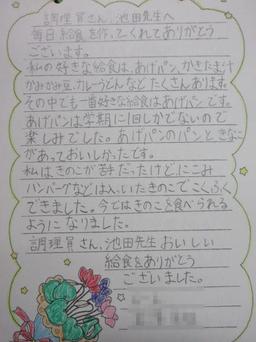 調理員さん、池田先生へ
毎日給食を作ってくれてありがとう
ございます。
私の好きな給食は、あげパン、かきたま汁
かみかみ豆、カレーうどんなどたくさんあります。
その中でも一番好きな給食はあげパンです。
あげパンは学期に1回しかでないので
楽しみでした。あげパンのパンときなこ
があっておいしかったです。
私はきのこが苦手だったけどにこみ
ハンバーグなどは入っいたきのこでこくふく
できました。今ではきのこを食べられる
ようになりました。
調理員さん、池田先生おいしい
給食をありがとう
ございました。